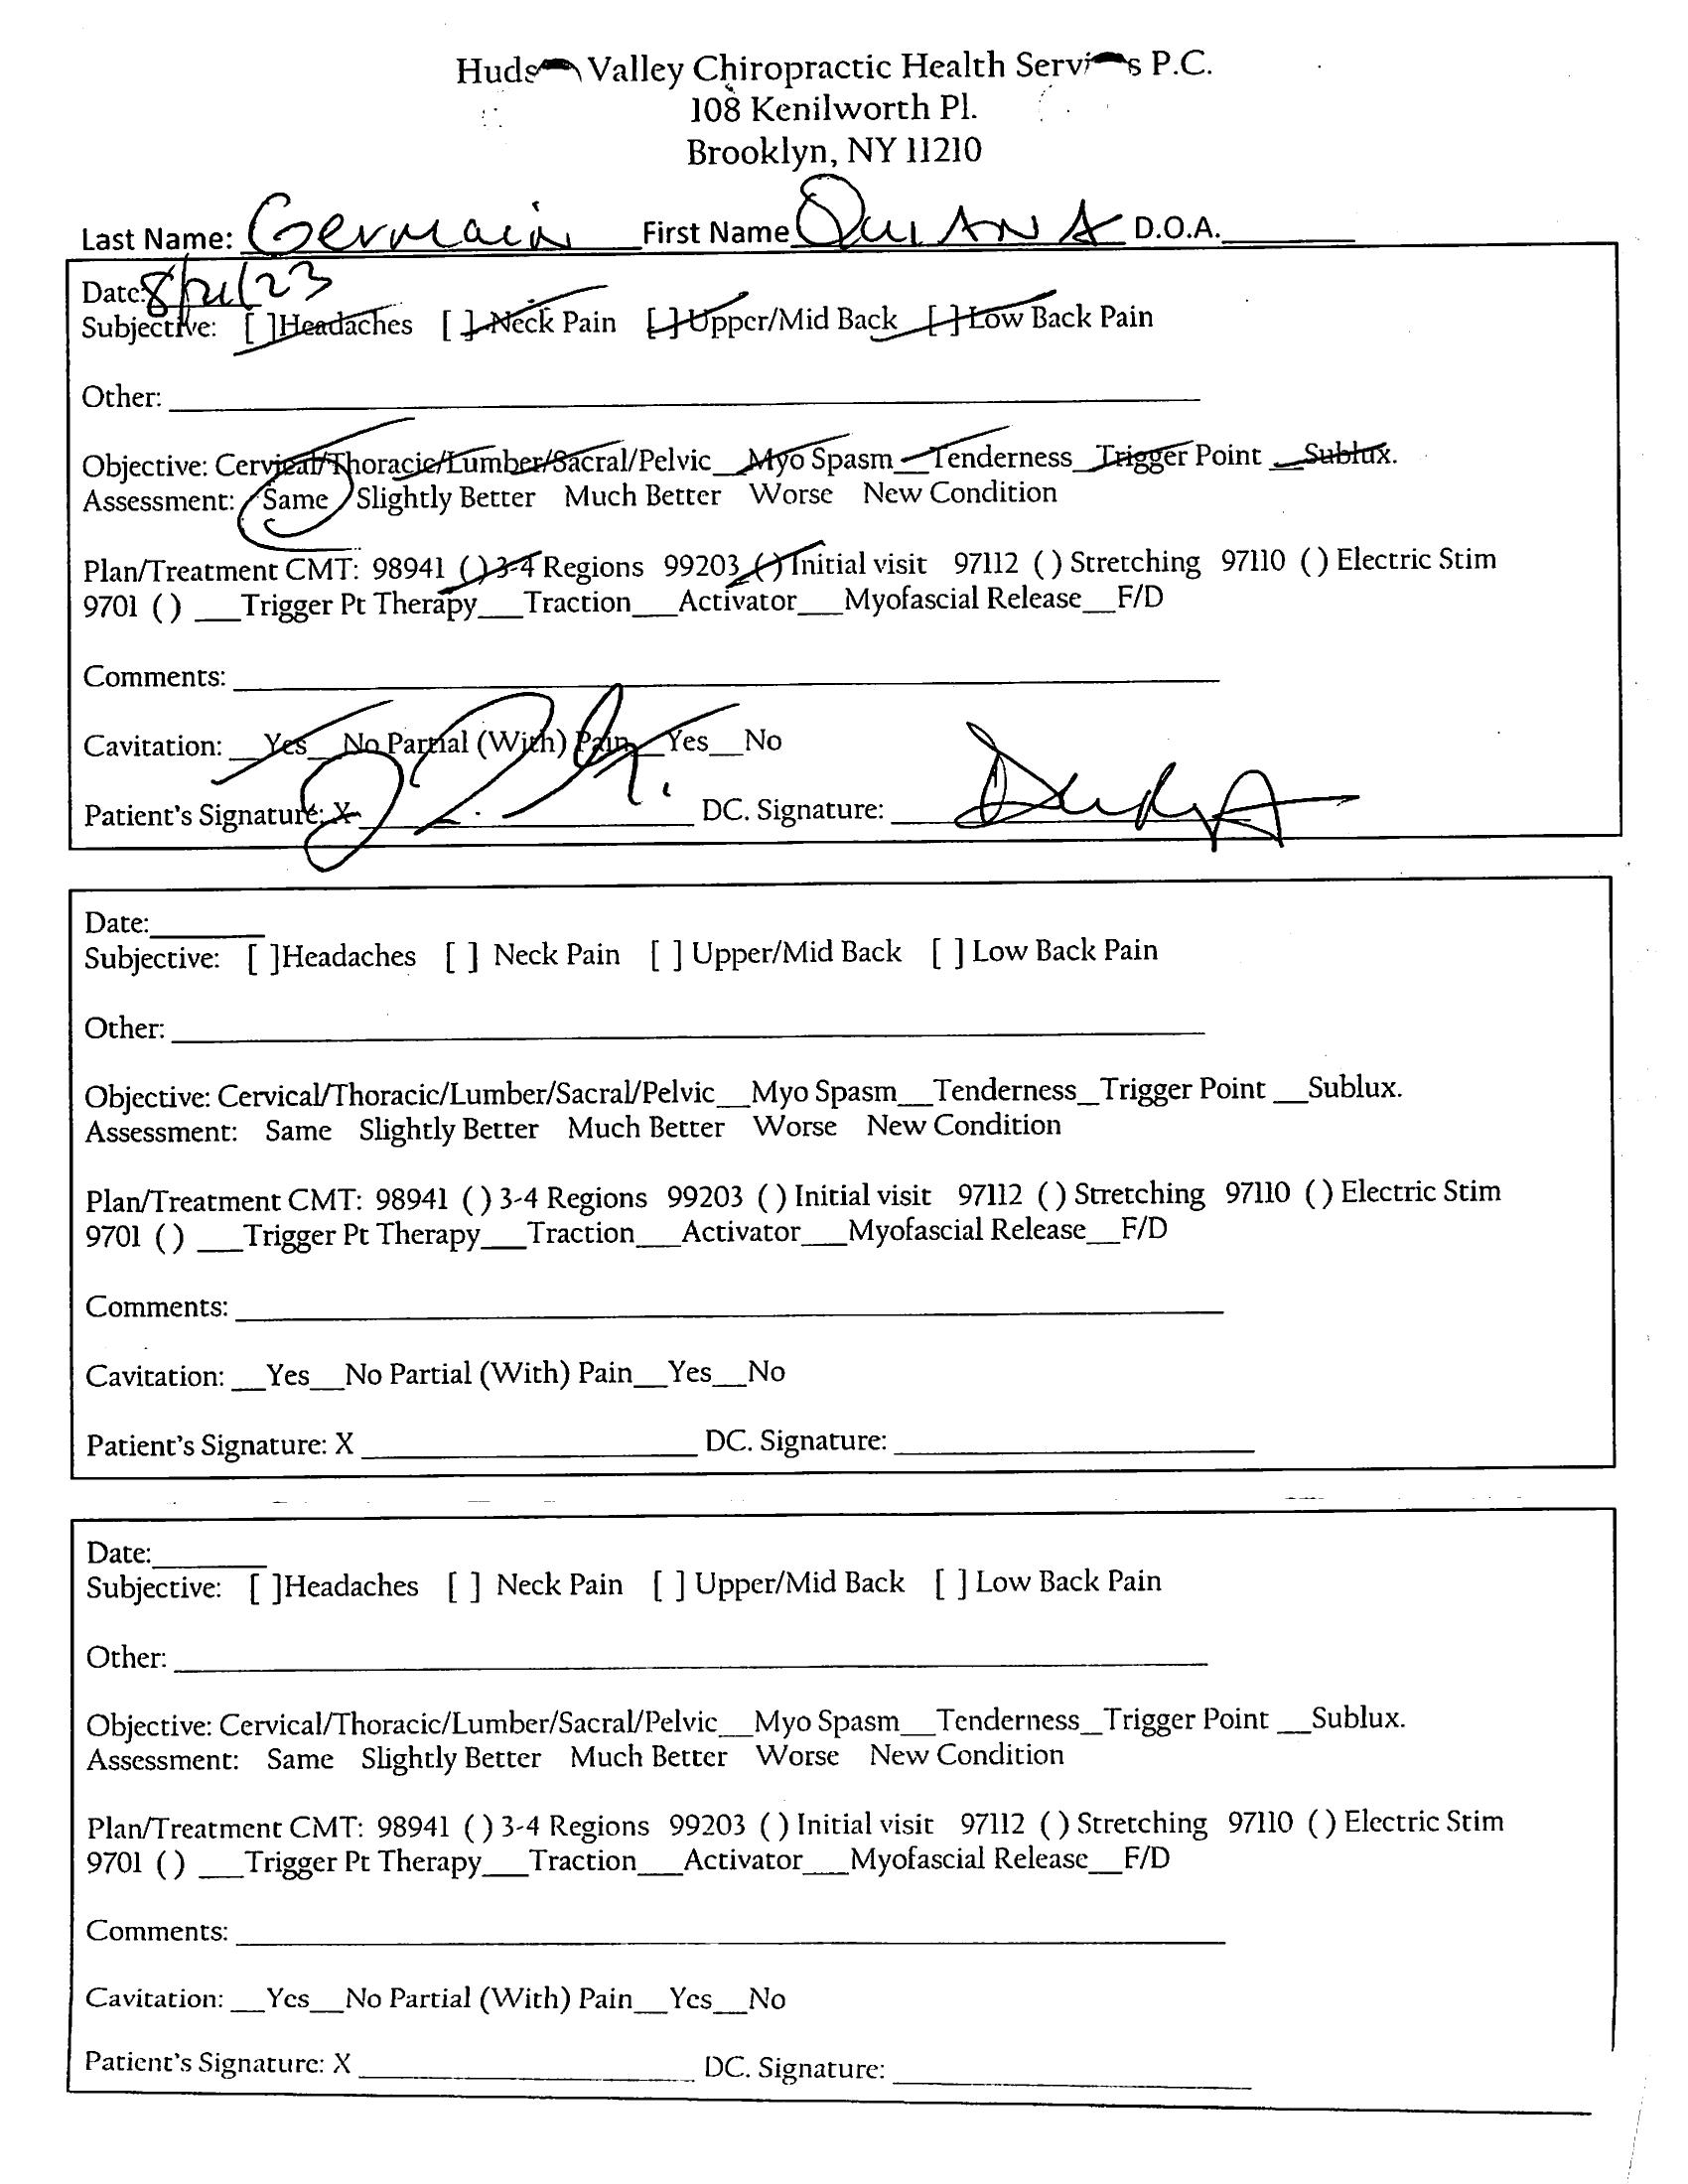 Hudson Valley Chiropractic Health Services P.C.
108 Kenilworth Pl.
Brooklyn, NY 11210
Last Name: Germain First Name QUIANA D.O.A.
Date: 8/21/23
Subjective: [ ]Headaches [ ] Neck Pain [ ] Upper/Mid Back [ ] Low Back Pain
Other:
Objective: Cervical/Thoracic/Lumber/Sacral/Pelvic__Myo Spasm__Tenderness_Trigger Point __Sublux.
Assessment: Same Slightly Better Much Better Worse New Condition
Plan/Treatment CMT: 98941 ( ) 3-4 Regions 99203 ( ) Initial visit 97112 ( ) Stretching 97110 ( ) Electric Stim
9701 ( ) ___Trigger Pt Therapy___Traction___Activator___Myofascial Release__F/D
Comments:
Cavitation: __Yes__No Partial (With) Pain__Yes__No
Patient's Signature: X DC. Signature:
Date:
Subjective: [ ]Headaches [ ] Neck Pain [ ] Upper/Mid Back [ ] Low Back Pain
Other:
Objective: Cervical/Thoracic/Lumber/Sacral/Pelvic__Myo Spasm__Tenderness_Trigger Point __Sublux.
Assessment: Same Slightly Better Much Better Worse New Condition
Plan/Treatment CMT: 98941 ( ) 3-4 Regions 99203 ( ) Initial visit 97112 ( ) Stretching 97110 ( ) Electric Stim
9701 ( ) ___Trigger Pt Therapy___Traction___Activator___Myofascial Release__F/D
Comments:
Cavitation: __Yes__No Partial (With) Pain__Yes__No
Patient's Signature: X DC. Signature:
Date:
Subjective: [ ]Headaches [ ] Neck Pain [ ] Upper/Mid Back [ ] Low Back Pain
Other:
Objective: Cervical/Thoracic/Lumber/Sacral/Pelvic__Myo Spasm__Tenderness_Trigger Point __Sublux.
Assessment: Same Slightly Better Much Better Worse New Condition
Plan/Treatment CMT: 98941 ( ) 3-4 Regions 99203 ( ) Initial visit 97112 ( ) Stretching 97110 ( ) Electric Stim
9701 ( ) ___Trigger Pt Therapy___Traction___Activator___Myofascial Release__F/D
Comments:
Cavitation: __Yes__No Partial (With) Pain__Yes__No
Patient's Signature: X DC. Signature: